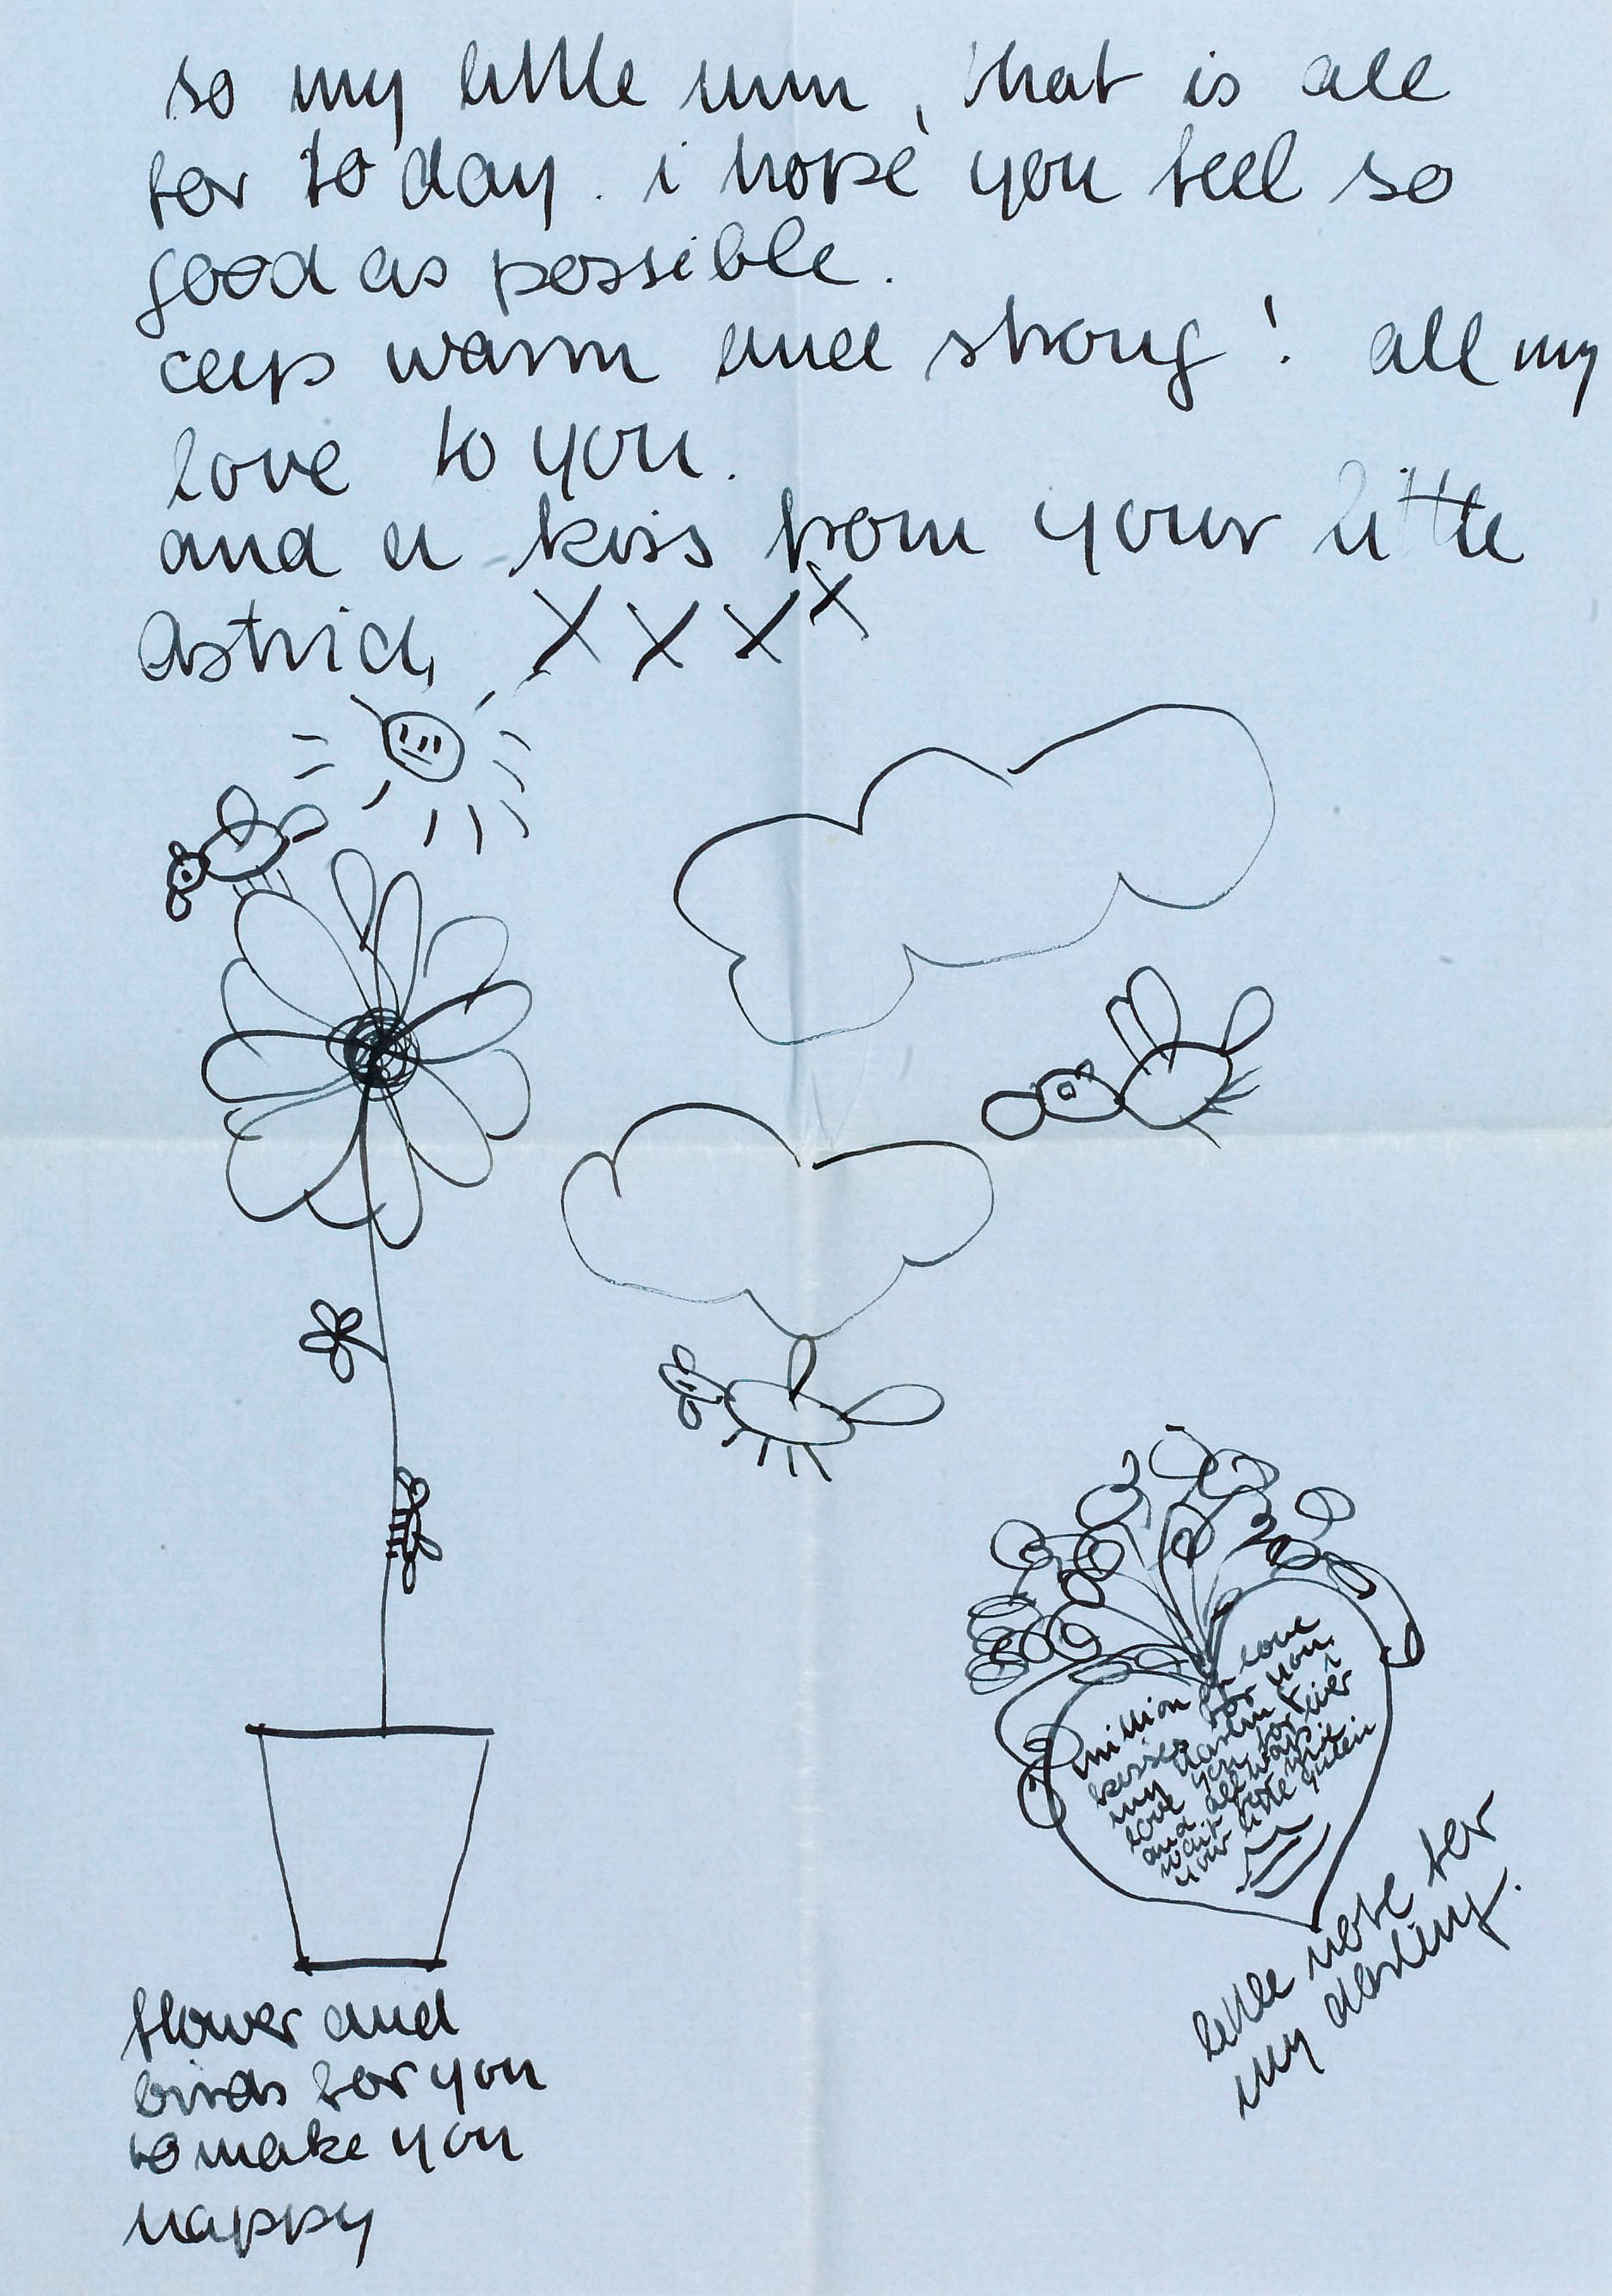 so my little mum, that is all
for to day. i hope you feel so
good as possible.
ceep warm and strong! all my
love to you.
and a kiss from your little
astrid, X X X X
million of love
kisses for you,
my darlin i
love you for ever
and all ways
wait for the
your little
little note for
my darling.
flower and
birds for you
to make you
happy